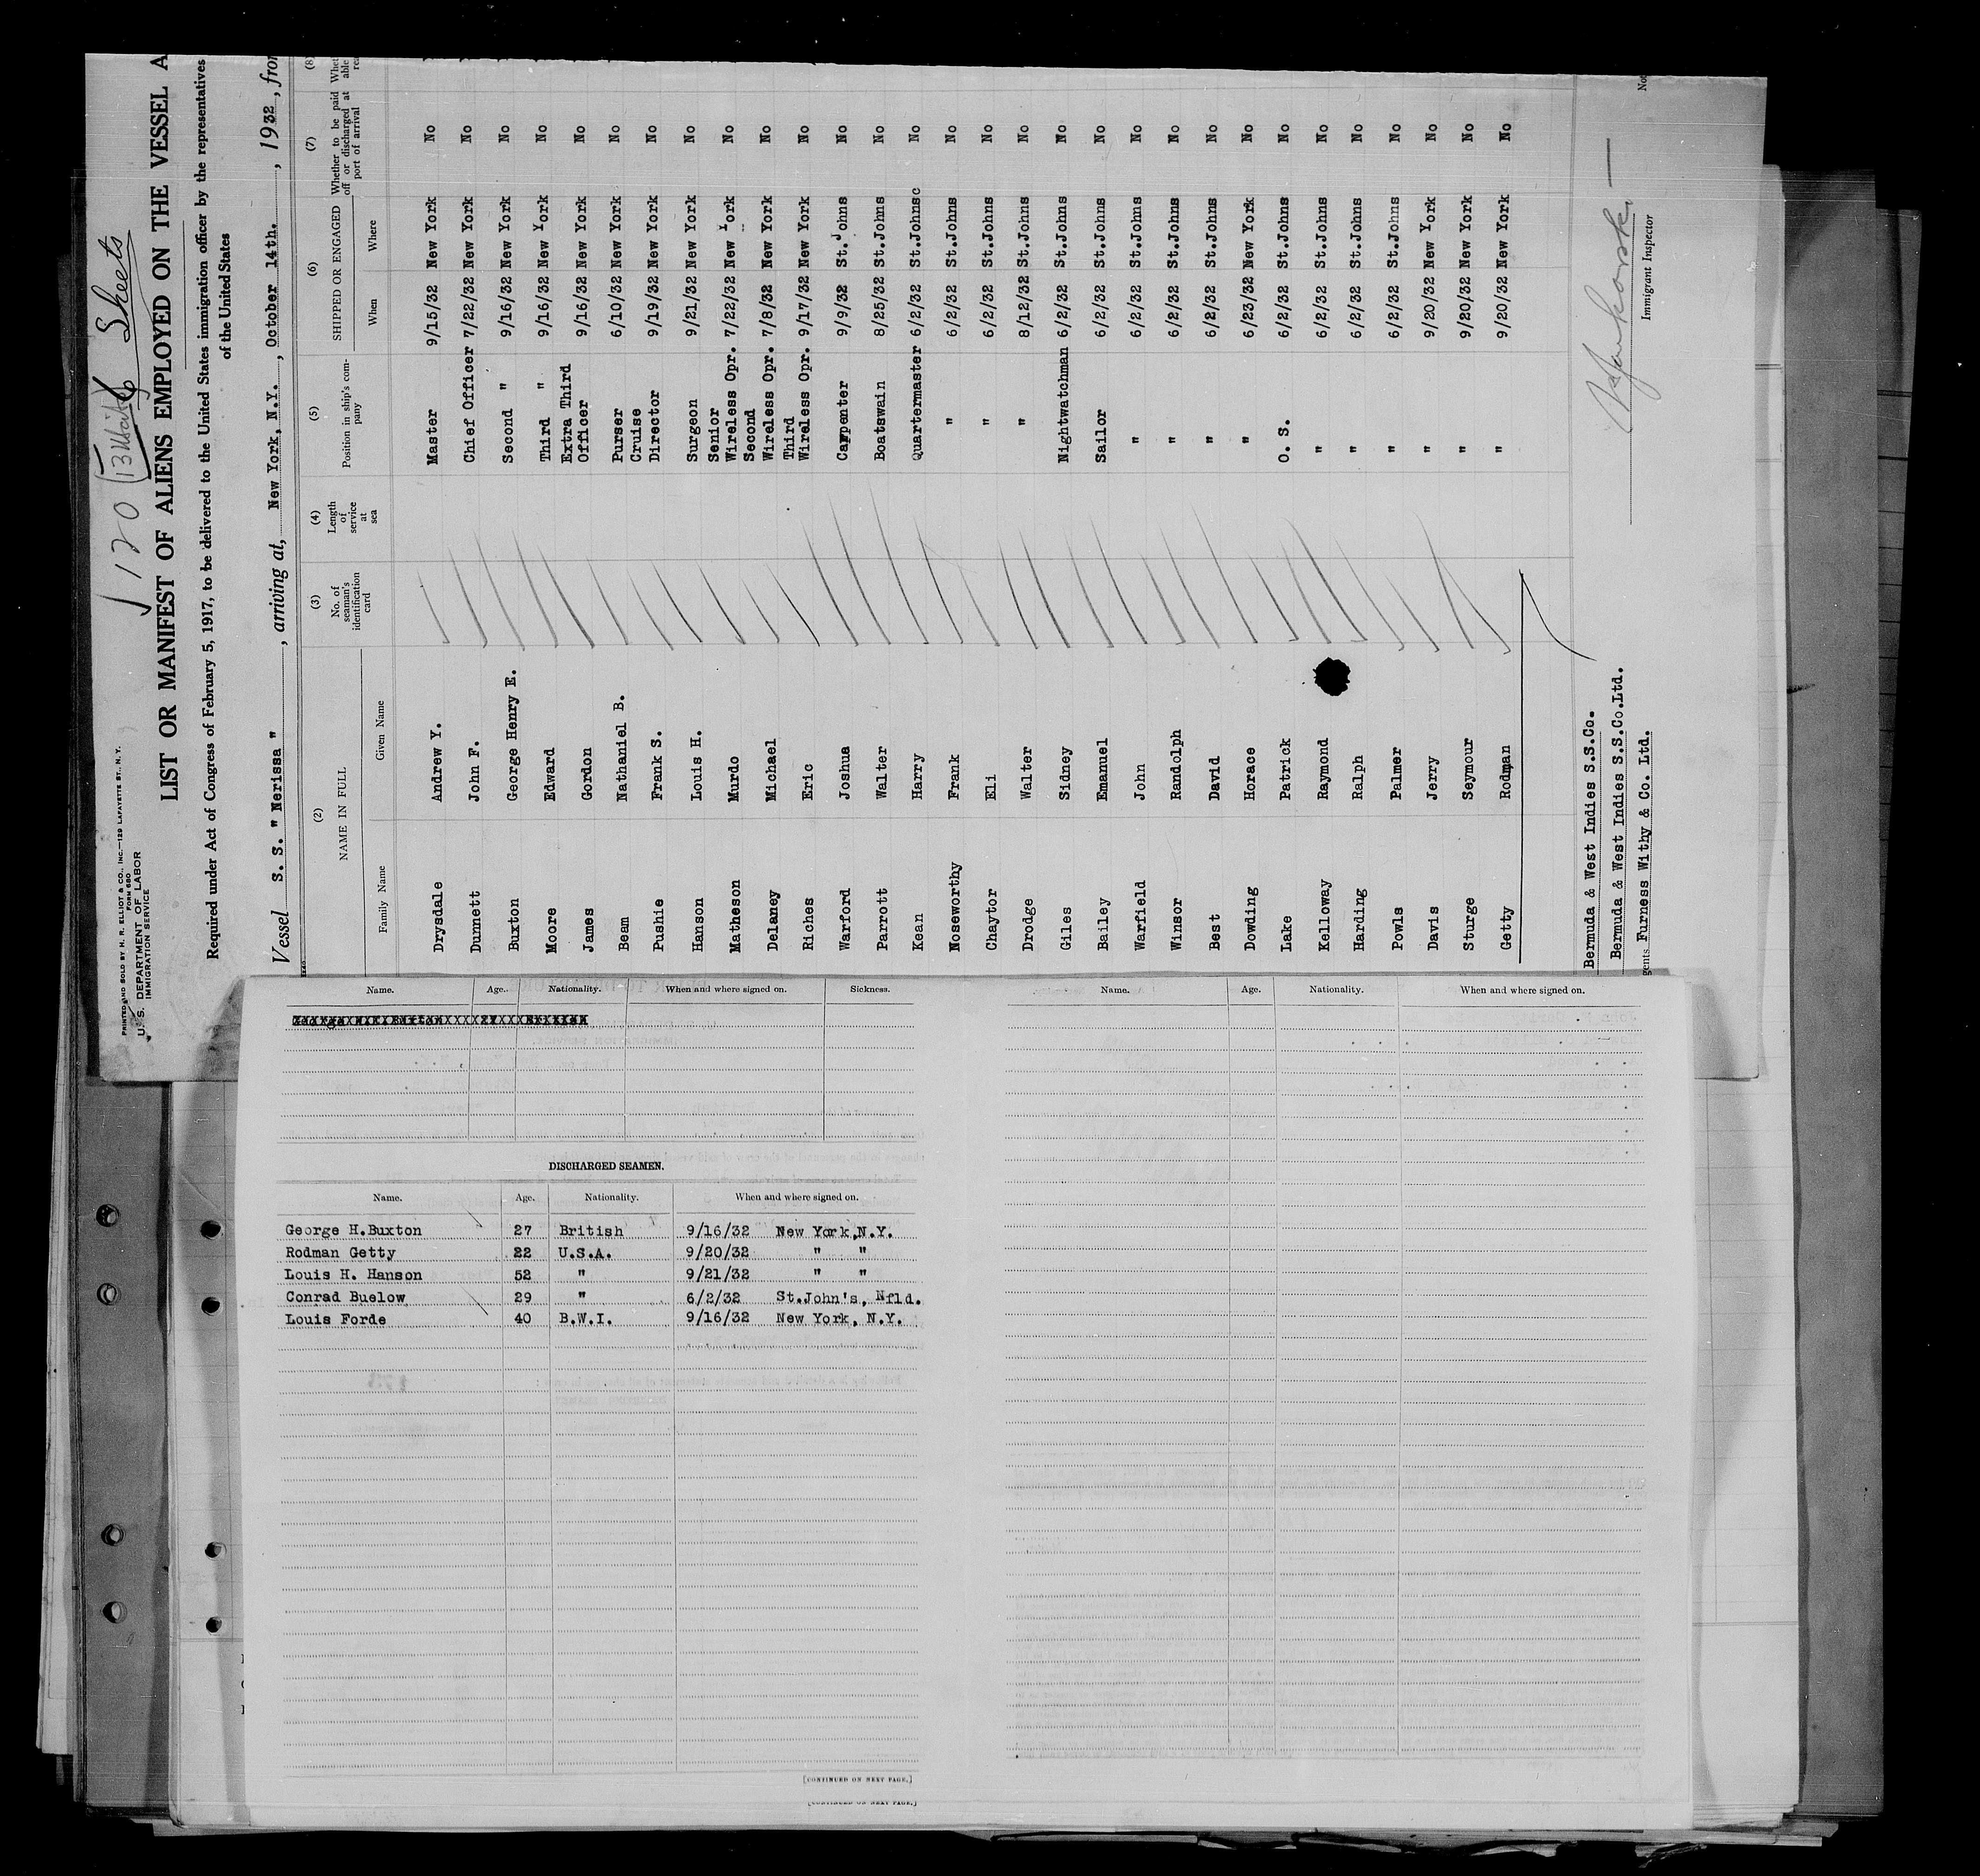 120 (13 Sheets
PRINTED AND SOLD BY H. R. ELLIOT & CO., INC.—129 LAFAYETTE ST., N. Y.
FORM 680
U. S. DEPARTMENT OF LABOR
IMMIGRATION SERVICE
LIST OR MANIFEST OF ALIENS EMPLOYED ON THE VESSEL A
Required under Act of Congress of February 5, 1917, to be delivered to the United States immigration officer by the representatives
of the United States
Vessel S. S. " Nerissa " , arriving at, New York, N.Y. , October 14th. , 1932 , from
(2) (3) (4) (5) (6) (7) (8)
NAME IN FULL No. of seaman's identification card Length of service at sea Position in ship's company SHIPPED OR ENGAGED Whether to be paid off or discharged at port of arrival
Family Name Given Name When Where
Drysdale Andrew Y. Master 9/15/32 New York No
Dunnett John F. Chief Officer 7/22/32 New York No
Buxton George Henry E. Second " 9/16/32 New York No
Moore Edward Third " 9/16/32 New York No
James Gordon Extra Third Officer 9/16/32 New York No
Beam Nathaniel B. Purser 6/10/32 New York No
Pushie Frank S. Cruise Director 9/19/32 New York No
Hanson Louis H. Surgeon 9/21/32 New York No
Matheson Murdo Senior Wireless Opr. 7/22/32 New York No
Delaney Michael Second Wireless Opr. 7/8/32 New York No
Riches Eric Third Wireless Opr. 9/17/32 New York No
Warford Joshua Carpenter 9/9/32 St.Johns No
Parrott Walter Boatswain 8/25/32 St.Johns No
Kean Harry Quartermaster 6/2/32 St.Johnsc No
Noseworthy Frank " 6/2/32 St.Johns No
Chaytor Eli " 6/2/32 St.Johns No
Drodge Walter " 8/12/32 St.Johns No
Giles Sidney Nightwatchman 6/2/32 St.Johns No
Bailey Emanuel Sailor 6/2/32 St.Johns No
Warfield John " 6/2/32 St.Johns No
Winsor Randolph " 6/2/32 St.Johns No
Best David " 6/2/32 St.Johns No
Dowding Horace " 6/23/32 New York No
Lake Patrick O. S. 6/2/32 St.Johns No
Kelloway Raymond " 6/2/32 St.Johns No
Harding Ralph " 6/2/32 St.Johns No
Powls Palmer " 6/2/32 St.Johns No
Davis Jerry " 9/20/32 New York No
Sturge Seymour " 9/20/32 New York No
Getty Rodman " 9/20/32 New York No
Bermuda & West Indies S.S.Co.
Bermuda & West Indies S.S.Co.Ltd.
gents Furness Withy & Co. Ltd.
Immigrant Inspector
Name. Age. Nationality. When and where signed on. Sickness.
DISCHARGED SEAMEN.
Name. Age. Nationality. When and where signed on.
George H.Buxton 27 British 9/16/32 New York,N.Y.
Rodman Getty 22 U.S.A. 9/20/32 " "
Louis H. Hanson 52 " 9/21/32 " "
Conrad Buelow 29 " 6/2/32 St.John's, Nfld.
Louis Forde 40 B.W.I. 9/16/32 New York, N.Y.
[CONTINUED ON NEXT PAGE.]
[CONTINUED ON NEXT PAGE.]
Name. Age. Nationality. When and where signed on.